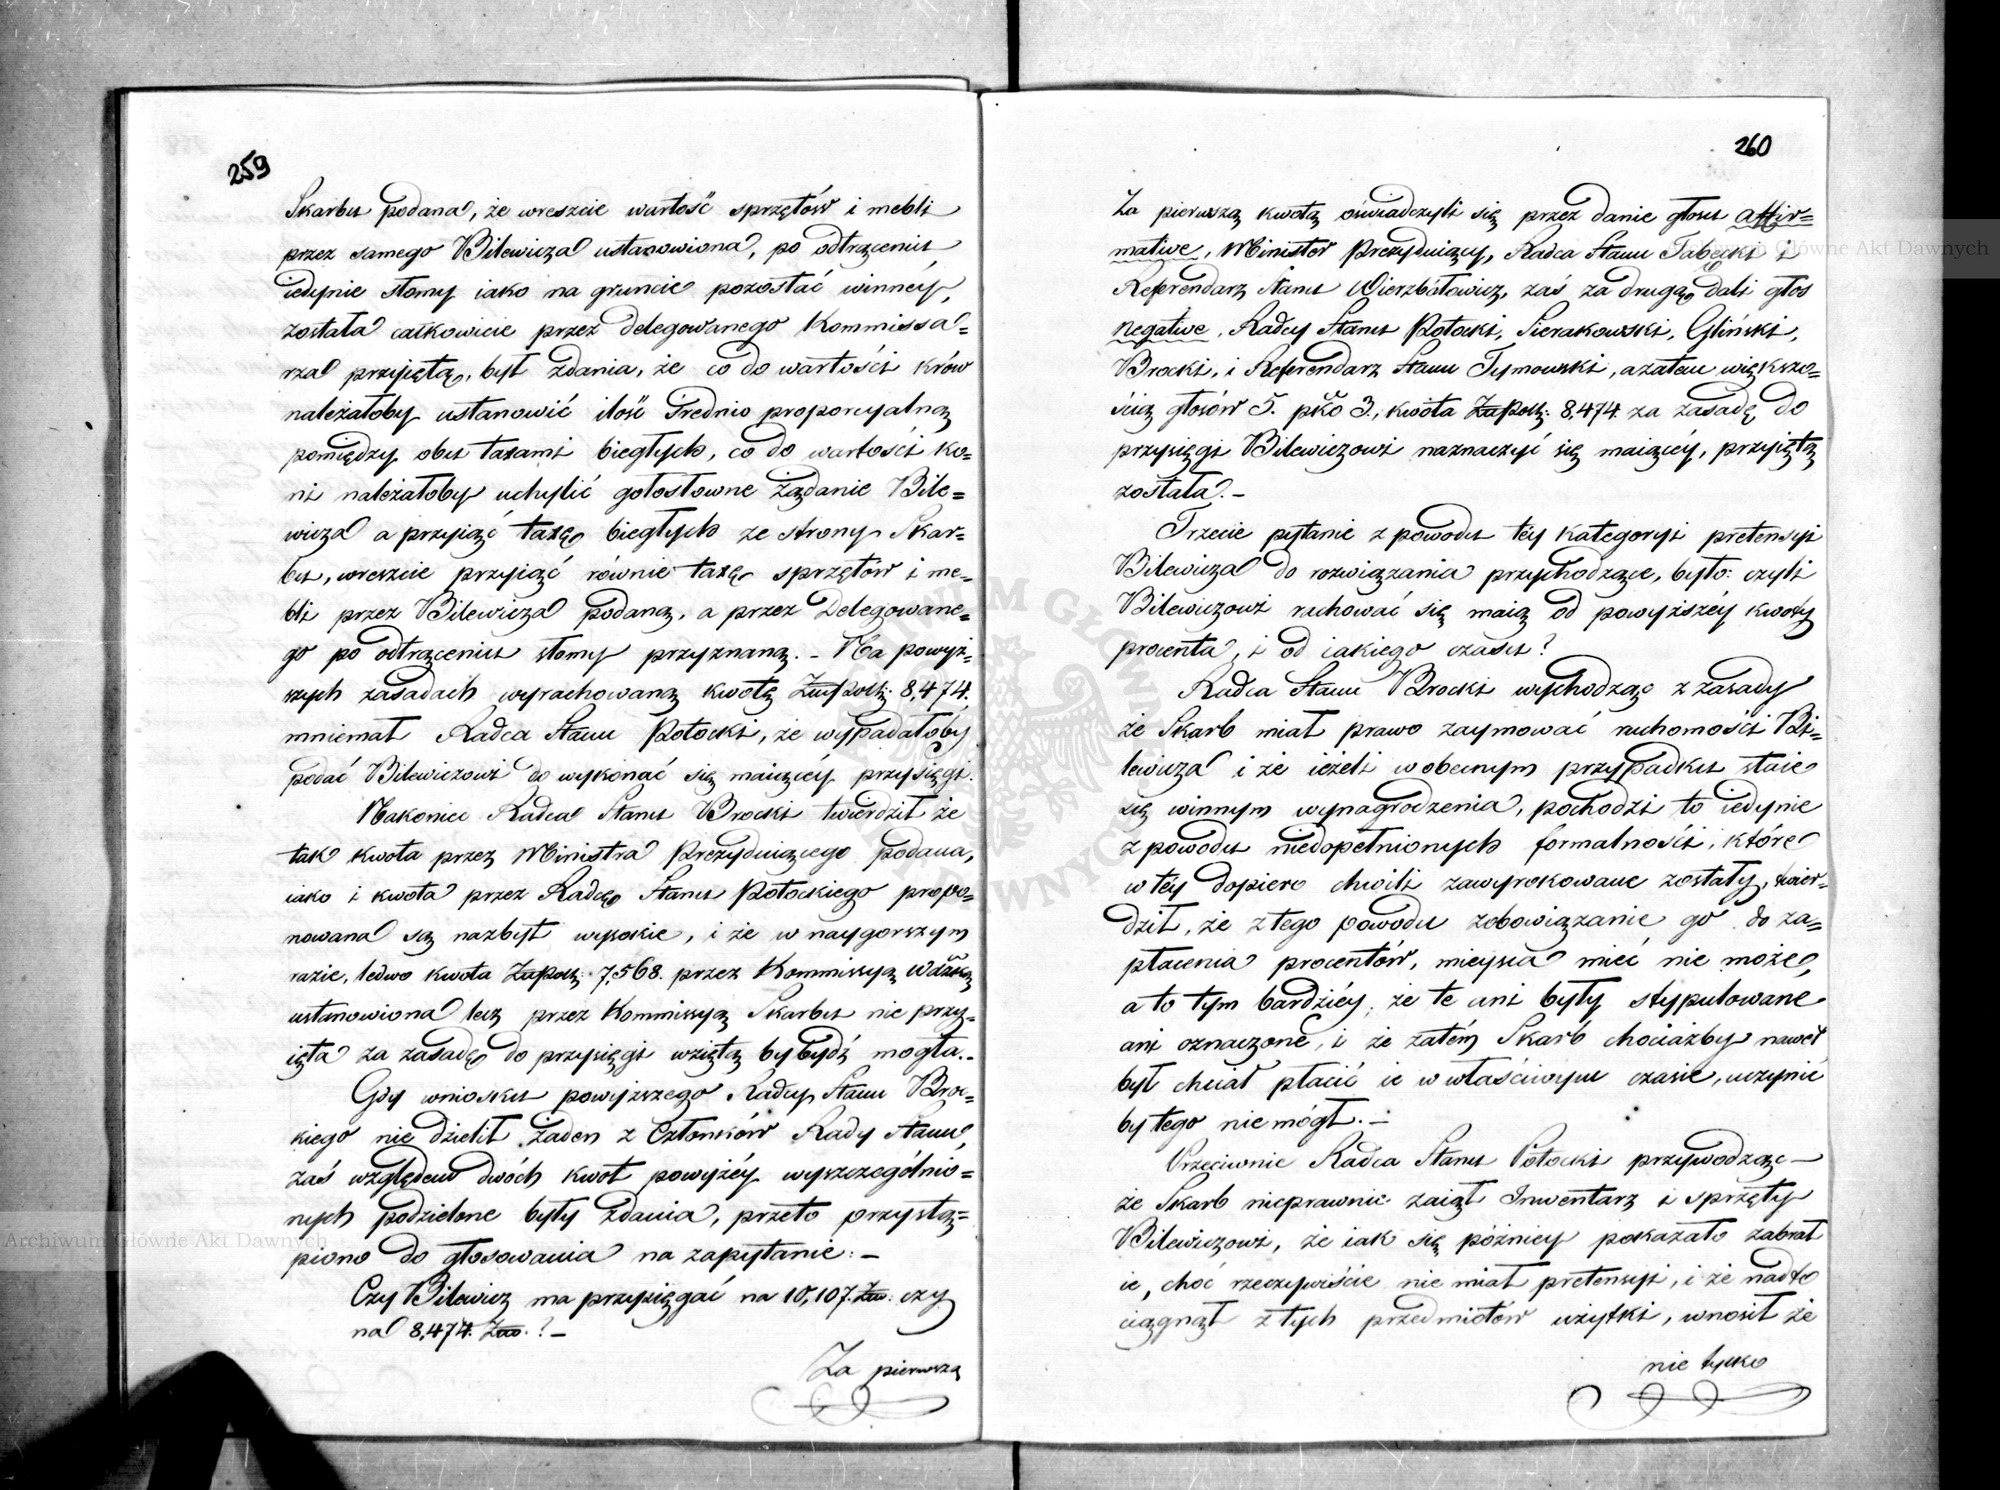 259
Skarbu podana, że wreszcie wartość sprzętów i mebli
przez samego Bilewicza ustanowiona, po odtrąceniu
iedynie słomy iako na gruncie pozostać winnéy,
została całkowicie przez delegowanego Kommissa=
rza przyiętą, był zdania, że co do wartości krów
należałoby ustanowić ilość średnio proporcyalną
pomiędzy obu taxami biegłych, co do wartości ko=
ni należałoby uchylić gołosłowne żądanie Bile=
wicza a przyiąć taxę biegłych ze strony Skar=
bu, wreszcie przyiąć równie taxę sprzętów i me=
bli przez Bilewicza podaną, a przez Delegowane=
go po odtrąceniu słomy przyznaną. – Na powyż=
szych zasadach wyrachowaną kwotę Złpolsk: 8,474.
mniemał Radca Stanu Potocki, że wypadałoby
podać Bilewiczowi do wykonać się maiącéy przysięgi.
Nakoniec Radca Stanu Brocki twierdził że
tak kwota przez Ministra Prezyduiącego podana,
iako i kwota przez Radcę Stanu Potockiego propo=
nowana są nazbyt wysokie, i że w naygorszym
razie, ledwo kwota Złpolsk: 7,568. przez Kommissyą Wdzką
ustanowiona lecz przez Kommissyą Skarbu nie przy=
ięta za zasadę do przysięgi wziętą by bydź mogła. –
Gdy wniosku powyższego Radcy Stanu Broc=
kiego nie dzielił żaden z Członków Rady Stanu,
zaś względem dwóch kwot powyżéy wyszczególnio=
nych podzielone były zdania, przeto przystą=
piono do głosowania na zapytanie: –
Czy Bilewicz ma przysięgać na 10,107. Złp. czy
na 8,474. Złp. ? –
Za pierwszą
260
Za pierwszą kwotą oświadczyli się przez danie głosu affir=
mative, Minister Prezyduiący, Radca Stanu Tabęcki i
Referendarz Stanu Wierzbołowicz, zaś za drugą dali głos
negative, Radcy Stanu Potocki, Sierakowski, Gliński,
Brocki, i Referendarz Stanu Tymowski, a zatem większo=
ścią głosów 5. pko 3., kwota Złpolsk: 8,474. za zasadę do
przysięgi Bilewiczowi naznaczyć się maiącéy, przyiętą
została. –
Trzecie pytanie z powodu téy kategoryi pretensyi
Bilewicza do rozwiązania przychodzące, było: czyli
Bilewiczowi rachować się maią od powyższéy kwoty
procenta, i od iakiego czasu?
Radca Stanu Brocki wychodząc z zasady
że Skarb miał prawo zaymować ruchomości Bi=
lewicza i że ieżeli w obecnym przypadku staie
się winnym wynagrodzenia, pochodzi to iedynie
z powodu niedopełnionych formalności, które
w téy dopiero chwili zawyrokowane zostały, twier=
dził, że z tego powodu zobowiązanie go do za=
płacenia procentów, mieysca mieć nie może,
a to tym bardziéy, że te ani były stypulowane
ani oznaczone, i że zatém Skarb chociażby nawet
był chciał płacić ie w właściwym czasie, uczynić
by tego nie mógł. –
Przeciwnie Radca Stanu Potocki przywodząc –
że Skarb nieprawnie zaiął Inwentarz i sprzęty
Bilewiczowi, że iak się późniey pokazało zabrał
ie, choć rzeczywiście nie miał pretensyi, i że nadto
ciągnął z tych przedmiotów użytki, wnosił że
nie tylko